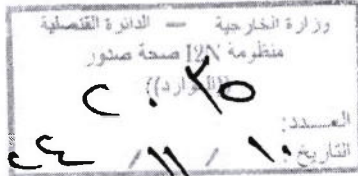 وزارة الخارجية — الدائرة القنصلية
منظومة I2N صحة صدور
((الوارد))
٢٠٣٥
العــــدد:
التاريخ: ١٠ / ١١ / ٢٤